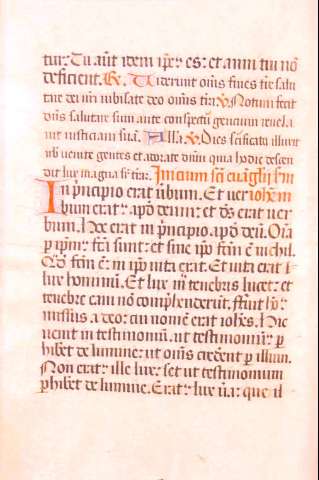 tur. Tu aut idem ipe es: et anni tui nō
deficient. R. Viderunt oms fines tre salu
tare dei nri iubilate deo omis tra. V. Notum fecit
dns salutare suum ante conspectu gencium reuela
uit iusticiam sua. Alla. V. Dies scificata illuxit
nob venite gentes et adorate dnm quia hodie descen
dit lux magna sr tra. Inicium sci euāglii scdm
In principio erat ūbum. Et ver iohēm
bum erat apd deum: et ds erat ver
bum. Hoc erat in pncipio apd deū. Oīa
p ipm fca sunt: et sine ipo fcm ē nichil.
Qd fcm ē: in ipo uita erat. Et uita erat
lux hominū. Et lux in tenebris lucet: et
tenebre eam nō comprehenderunt. Fuit hō
missus a deo: cui nomē erat iohēs. Hic
uenit in testimoniū. ut testimoniū p
hibet de lumine: ut omis crederēt p illum.
Non erat ille lux: set ut testimonium
phibet de lumine. Erat lux ūa: que il